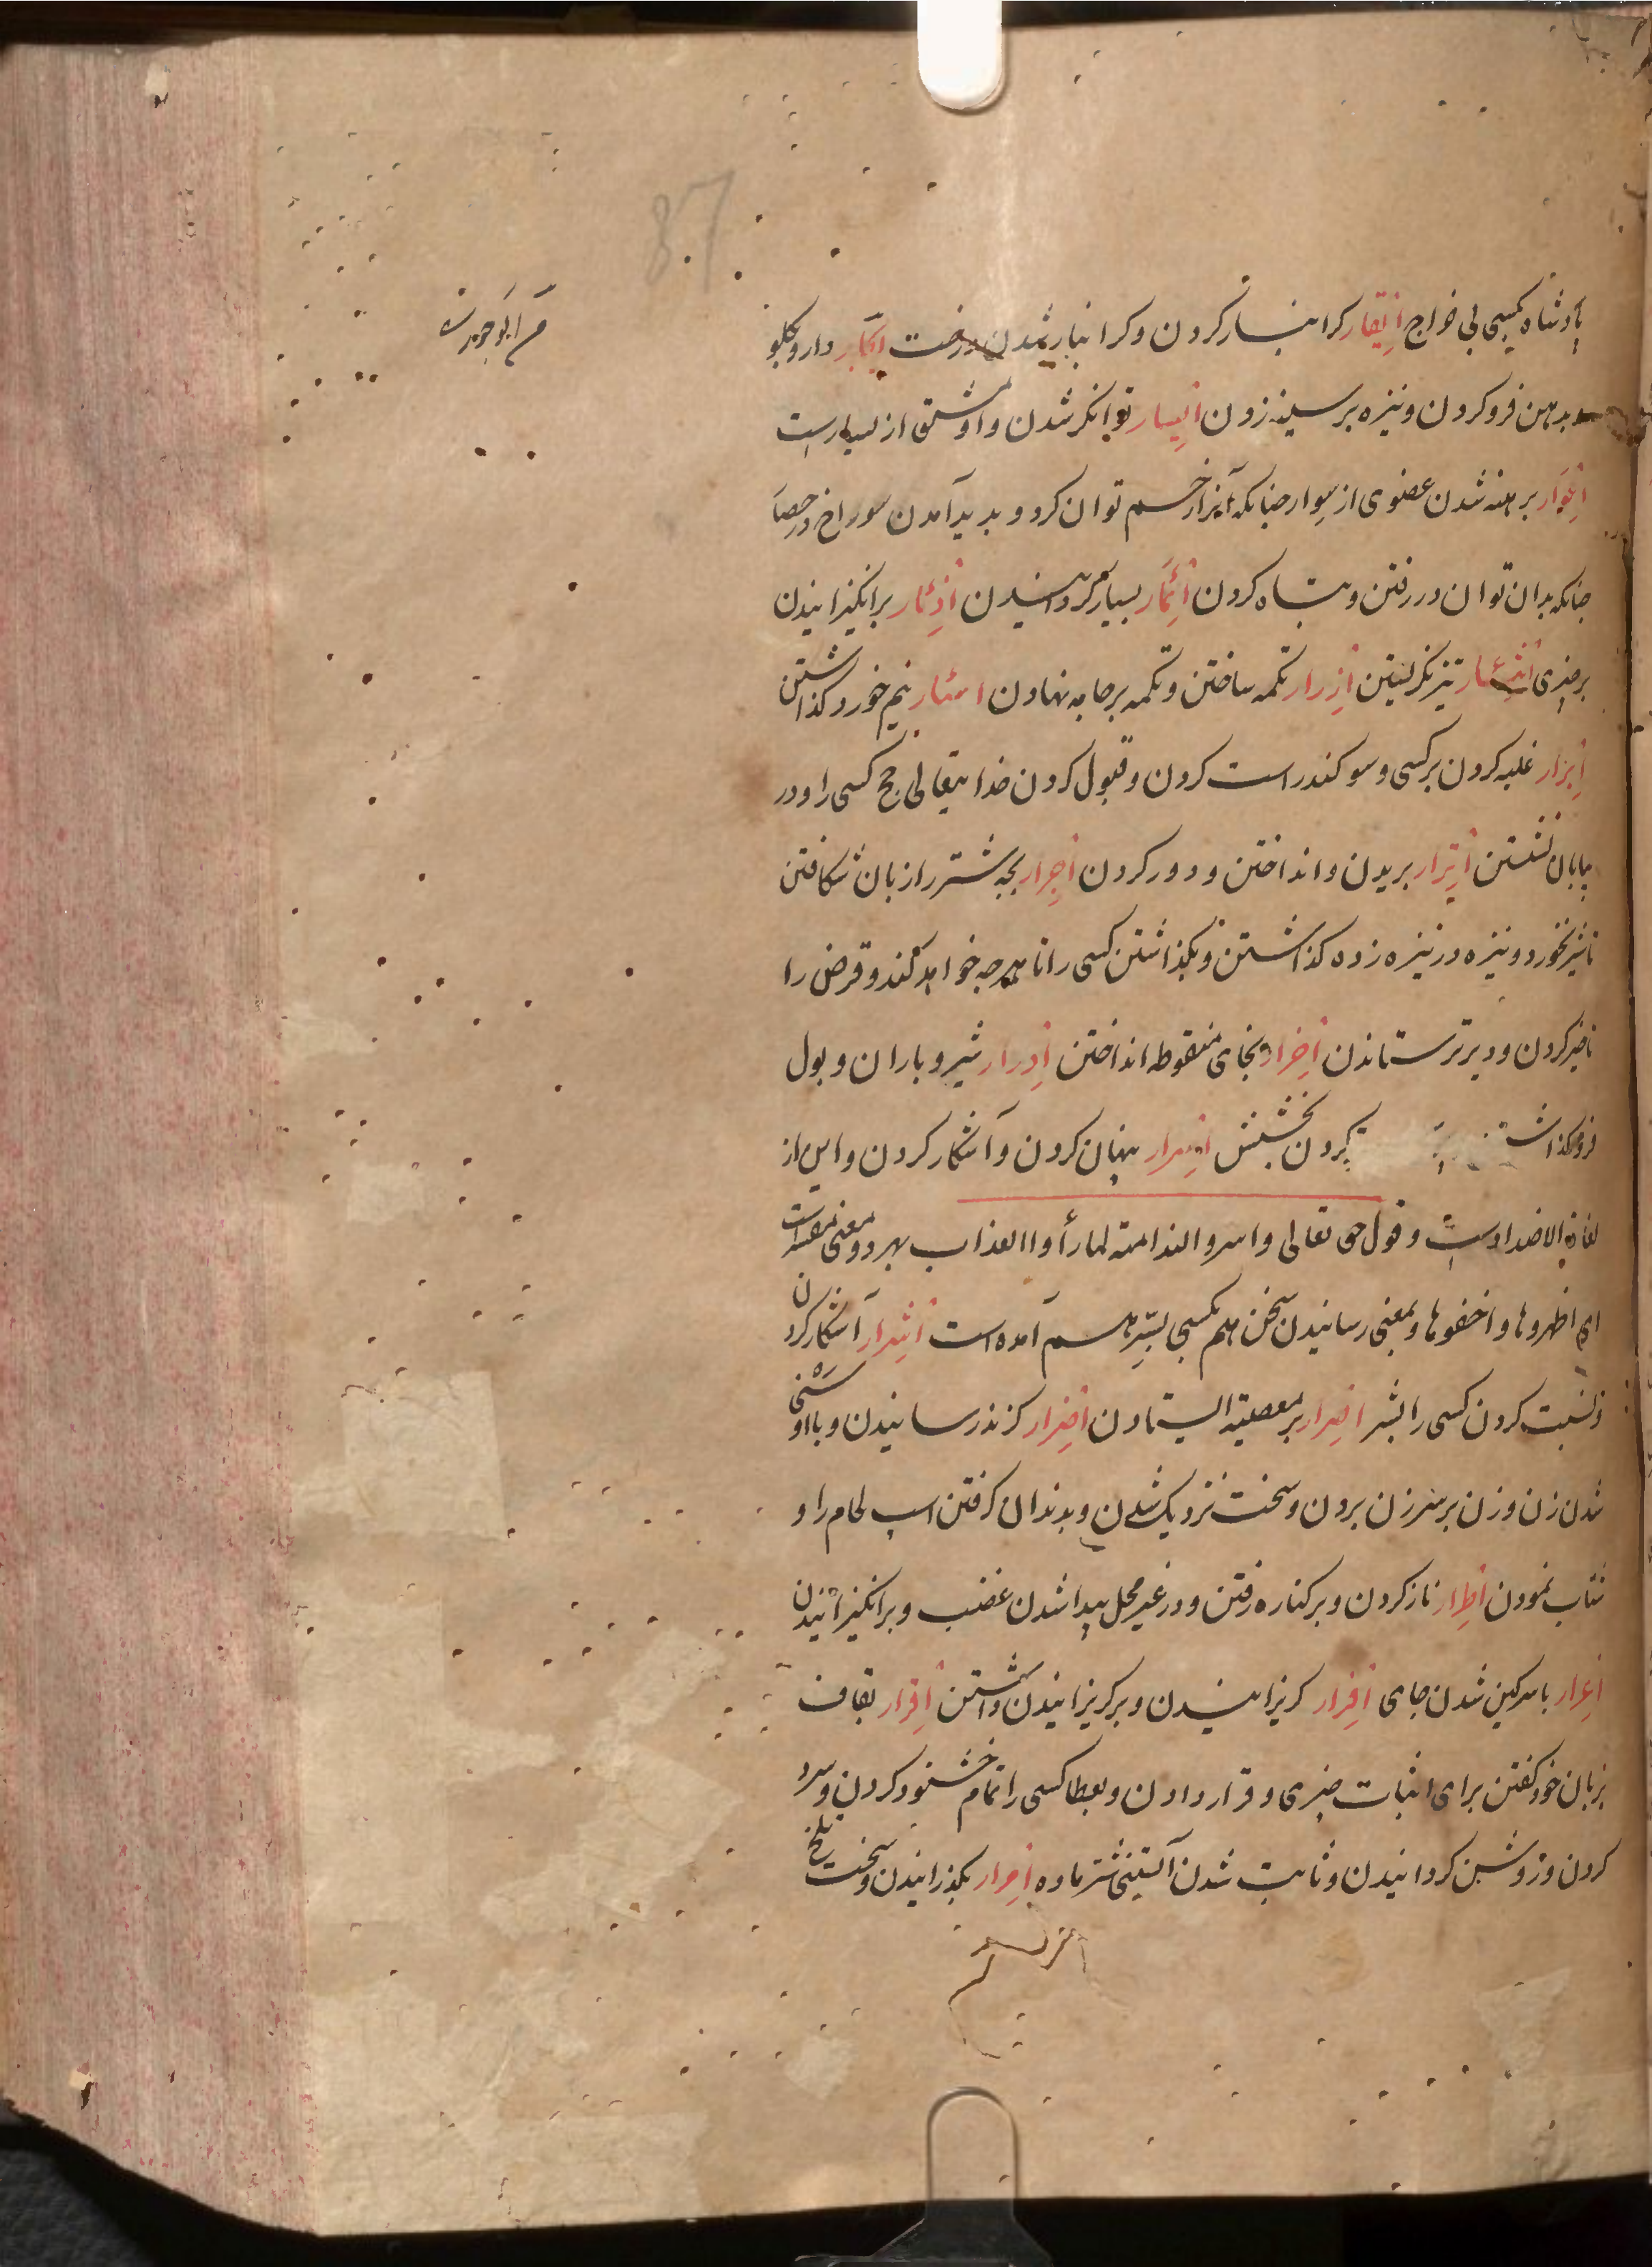 87
م ابو جهرت
پادشاه بکسی بی خراج ایقار کرانبار کردن و کرانبار شدن درخت ایجار دارو بکلو
بدهن فرو کردن و نیزه بر سینه زدن ایسار توانکر شدن و او مشتق از یسار است
اعوار برهنه شدن عضوی از سوار چنانکه آنرا زخم توان کرد و بدید آمدن سوراخ در حصار
چنانکه بدان توان در رفتن و تباه کردن اثمار بسیار کردانیدن اذءار برانکیزانیدن
بر چیزی اتئار تیز نکرلیتن ازرار تکمه ساختن و تکمه بر جامه نهادن اسئار نیم خورد کذاشتن
ابرار غلبه کردن بر کسی و سوکند راست کردن و قبول کردن خدایتعالی حج کسی را و در
بیابان نشستن اترار بریدن و انداختن و دور کردن اجرار بچه شتر را زبان شکافتن
تا شیر نخورد و نیزه در نیزه زده کذاشتن و بکذاشتن کسی را تا هر چه خواهد کند و قرض را
تاخیر کردن و دیرتر ستاندن اخرار بخای منقوطه انداختن ادرار شیر و باران و بول
فرو کذاشت کردن بخشش اسرار پنهان کردن و آشکار کردن و این از
لغات الاضداد است و قول حق تعالی و اسروا الندامة لما رأوا العذاب بهر دو معنی مفسر است
ای اظهروها و اخفوها و بمعنی رسانیدن سخن هم بکسی بسر هم آمده است اشرار آشکار کردن
و نسبت کردن کسی را بشر اصرار بر معصیة ایستادن اضرار کزند رسانیدن و با اوسنی
شدن زن و زن بر سر زن بردن و سخت نزدیک شدن و بدندان کرفتن اسب لجام را و
شتاب نمودن اطرار ناز کردن و بر کناره رفتن و در غیر محل پیدا شدن غضب و برانکیزانیدن
اعرار با سرکین شدن جای افرار کریزانیدن و بر کریزانیدن داشتن اقرار بقاف
بزبان خود کفتن برای اثبات چیزی و قرار دادن و بعطا کسی را تمام خشنود کردن و سرد
کردن و روشن کردانیدن و ثابت شدن آبستنی شتر ماده امرار بکذرانیدن و سخت تلخ